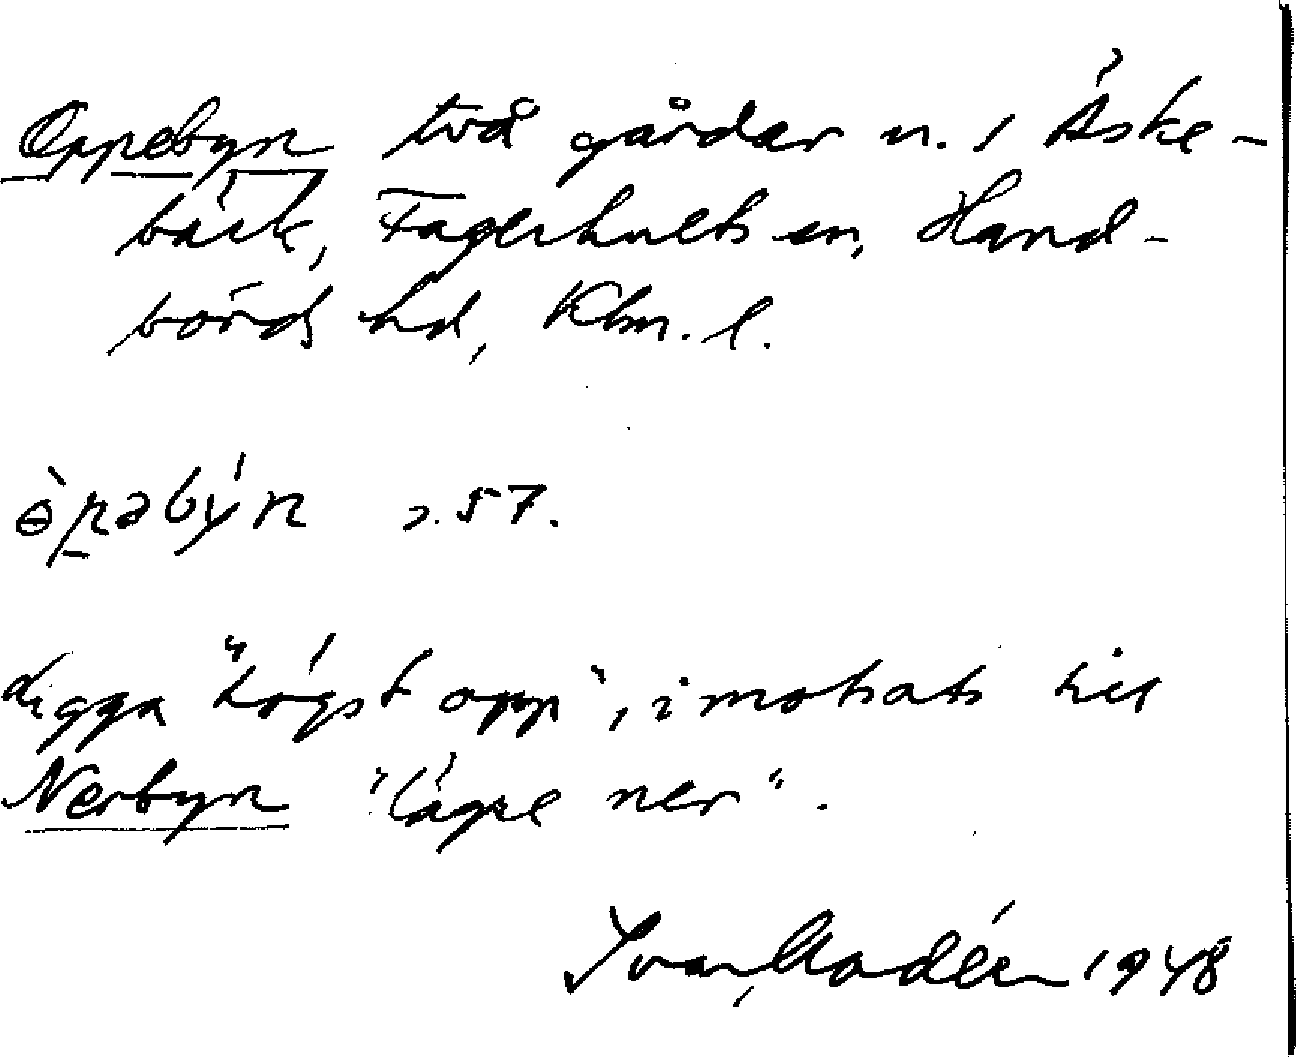 Oppebyn två gårdar n. i Äske-
bäck, Fagerhults sn, Hand-
börds hd, Klm. l.
ɵ̀pəbýn s. 57.
Ligga "högst opp", i motsats till
Nerbyn "lägre ner".
Ivar Modéer 1948